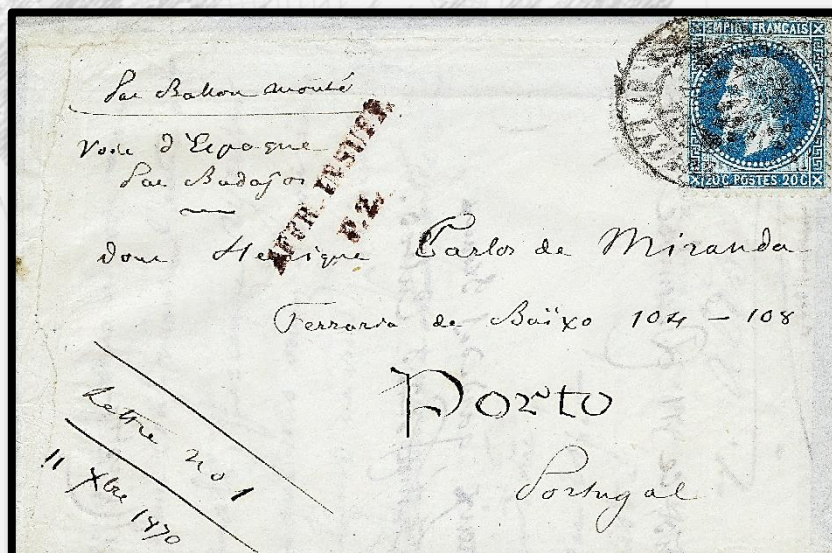 EMPIRE FRANCAIS
20 C POSTES 20 C
Par Ballon monté
Voie d'Espagne
Par Badajos
AFFR. INSUFF.
P.2.
Dom Henrique Carlos de Miranda
Ferraria de Baïxo 104 - 108
Porto
Portugal
Lettre no 1
11 Xbre 1870